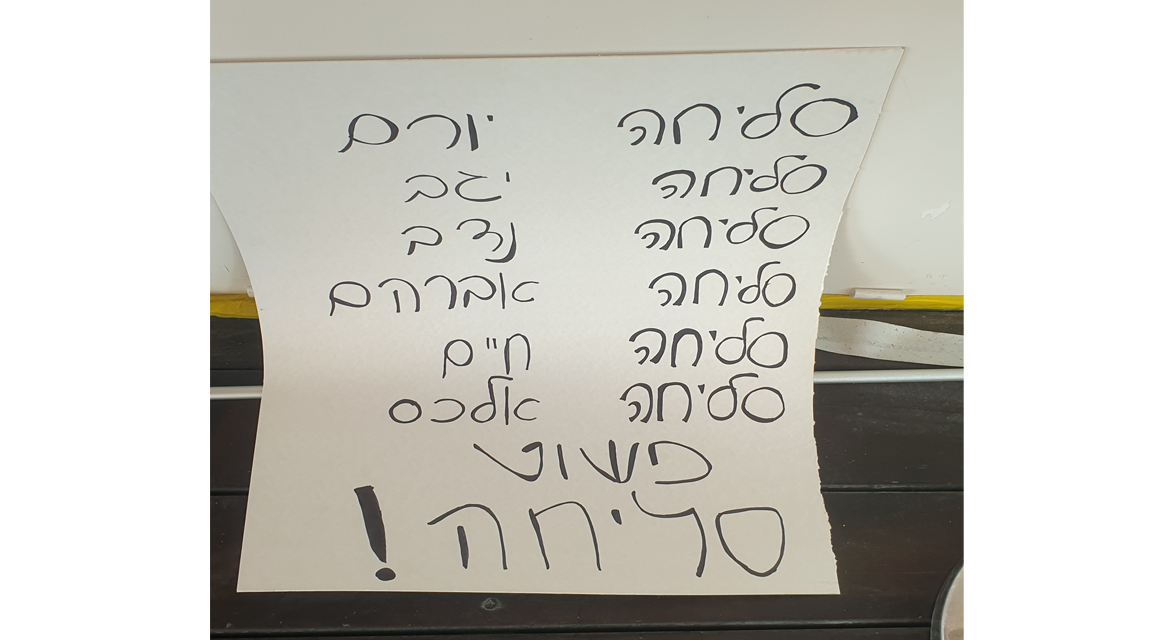 סליחה יורם
סליחה יגב
סליחה נדב
סליחה אברהם
סליחה חיים
סליחה אלכס
פשוט
סליחה!